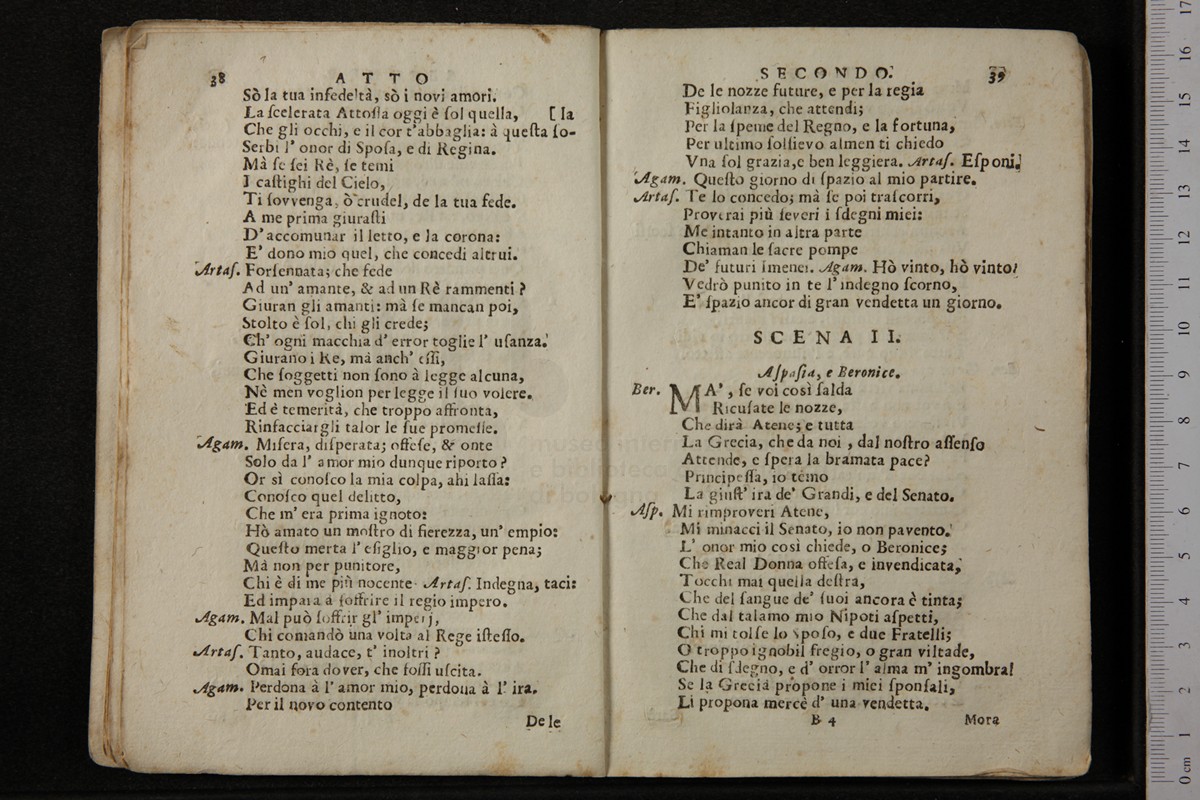 38 ATTO
Sò la tua infedeltà, sò i novi amori.
La ſcelerata Attoſſa oggi è ſol quella, [la
Che gli occhi, e il cor t'abbaglia: à queſta ſo-
Serbi l' onor di Spoſa, e di Regina.
Mà ſe ſei Rè, ſe temi
I caſtighi del Cielo,
Ti ſovvenga, ò crudel, de la tua fede.
A me prima giuraſti
D' accomunar il letto, e la corona:
E' dono mio quel, che concedi altrui.
Artaſ. Forſennata; che fede
Ad un' amante, & ad un Rè rammenti ?
Giuran gli amanti: mà ſe mancan poi,
Stolto è ſol, chi gli crede;
Ch' ogni macchia d' error toglie l' uſanza.
Giurano i Re, mà anch' eſſi,
Che ſoggetti non ſono à legge alcuna,
Nè men voglion per legge il ſuo volere.
Ed è temerità, che troppo affronta,
Rinfacciargli talor le ſue promeſſe.
Agam. Miſera, diſperata; offeſe, & onte
Solo da l' amor mio dunque riporto ?
Or sì conoſco la mia colpa, ahi laſſa:
Conoſco quel delitto,
Che m' era prima ignoto:
Hò amato un moſtro di fierezza, un' empio:
Queſto merta l' eſiglio, e maggior pena;
Mà non per punitore,
Chi è di me più nocente. Artaſ. Indegna, taci:
Ed impara à ſoffrire il regio impero.
Agam. Mal può ſoffrir gl' imperj,
Chi comandò una volta al Rege iſteſſo.
Artaſ. Tanto, audace, t' inoltri ?
Omai fora dover, che foſſi uſcita.
Agam. Perdona à l' amor mio, perdona à l' ira.
Per il novo contento
De le
SECONDO. 39
De le nozze future, e per la regia
Figliolanza, che attendi;
Per la ſpeme del Regno, e la fortuna,
Per ultimo ſollievo almen ti chiedo
Vna ſol grazia, e ben leggiera. Artaſ. Eſponi.
Agam. Queſto giorno di ſpazio al mio partire.
Artaſ. Te lo concedo; mà ſe poi traſcorri,
Proverai più ſeveri i ſdegni miei:
Me intanto in altra parte
Chiaman le ſacre pompe
De' futuri Imenei. Agam. Hò vinto, hò vinto!
Vedrò punito in te l' indegno ſcorno,
E' ſpazio ancor di gran vendetta un giorno.
SCENA II.
Aſpaſia, e Beronice.
Ber. MA', ſe voi così ſalda
Ricuſate le nozze,
Che dirà Atene; e tutta
La Grecia, che da noi , dal noſtro aſſenſo
Attende, e ſpera la bramata pace?
Principeſſa, io temo
La giuſt' ira de' Grandi, e del Senato.
Aſp. Mi rimproveri Atene,
Mi minacci il Senato, io non pavento.
L' onor mio così chiede, o Beronice;
Che Real Donna offeſa, e invendicata,
Tocchi mai quella deſtra,
Che del ſangue de' ſuoi ancora è tinta;
Che dal talamo mio Nipoti aſpetti,
Chi mi tolſe lo Spoſo, e due Fratelli;
O troppo ignobil fregio, o gran viltade,
Che di ſdegno, e d' orror l' alma m' ingombra!
Se la Grecia propone i miei ſponſali,
Li propona mercè d' una vendetta.
B 4 Mora